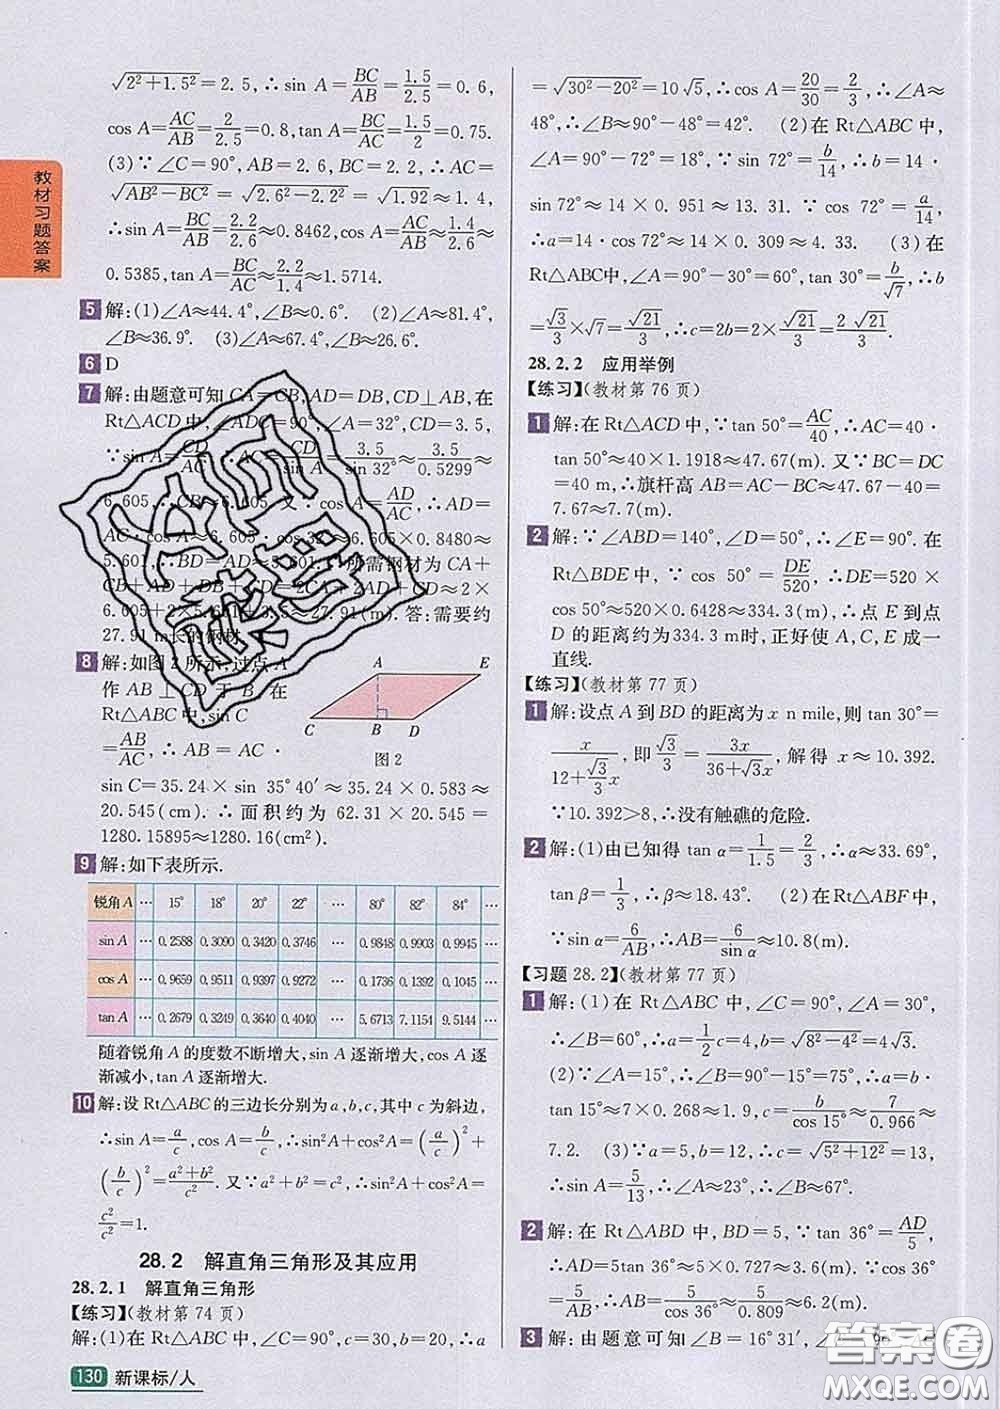 教材习题答案
√(2²+1.5²)=2.5,∴sin A=BC/AB=1.5/2.5=0.6,
cos A=AC/AB=2/2.5=0.8,tan A=BC/AC=1.5/2=0.75.
(3)∵∠C=90°,AB=2.6,BC=2.2,∴AC=
√(AB²-BC²)=√(2.6²-2.2²)=√1.92≈1.4,
∴sin A=BC/AB=2.2/2.6≈0.8462,cos A=AC/AB≈1.4/2.6≈
0.5385,tan A=BC/AC≈2.2/1.4≈1.5714.
5 解:(1)∠A≈44.4°,∠B≈0.6°. (2)∠A≈81.4°,
∠B≈36.9°. (3)∠A≈67.4°,∠B≈26.6°.
6 D
7 解:由题意可知 CA=CB,AD=DB,CD⊥AB,在
Rt△ACD 中,∠ADC=90°,∠A=32°,CD=3.5,
∵sin A=CD/CA,∴CA=CD/sin A=3.5/sin 32°≈3.5/0.5299≈
6.605,∴CB=6.605.又∵cos A=AD/AC,∴AD=
AC·cos A≈6.605×cos 32°≈6.605×0.8480≈
5.601,∴BD=AD≈5.601,∴所需钢材为 CA+
CB+AD+DB+CD=2CA+2AD+CD≈2×
6.605+2×5.601+3.5≈27.91(m).答:需要约
27.91 m长的钢材.
8 解:如图 2 所示,过点 A
作 AB⊥CD 于 B,在
Rt△ABC 中,sin C
=AB/AC,∴AB=AC·
A E C B D
图 2
sin C=35.24×sin 35°40′≈35.24×0.583≈
20.545(cm).∴面积约为 62.31×20.545=
1280.15895≈1280.16(cm²).
9 解:如下表所示.
锐角 A … 15° 18° 20° 22° … 80° 82° 84° …
sin A … 0.2588 0.3090 0.3420 0.3746 … 0.9848 0.9903 0.9945 …
cos A … 0.9659 0.9511 0.9397 0.9272 … 0.1736 0.1392 0.1045 …
tan A … 0.2679 0.3249 0.3640 0.4040 … 5.6713 7.1154 9.5144 …
随着锐角 A 的度数不断增大,sin A 逐渐增大,cos A 逐
渐减小,tan A 逐渐增大.
10 解:设 Rt△ABC 的三边长分别为 a,b,c,其中 c 为斜边,
∴sin A=a/c,cos A=b/c,∴sin²A+cos²A=(a/c)²+
(b/c)²=(a²+b²)/c².又∵a²+b²=c²,∴sin²A+cos²A=
c²/c²=1.
28.2 解直角三角形及其应用
28.2.1 解直角三角形
【练习】(教材第 74 页)
解:(1)在 Rt△ABC 中,∠C=90°,c=30,b=20,∴a
130 新课标/人
=√(30²-20²)=10√5,∴cos A=20/30=2/3,∴∠A≈
48°,∴∠B≈90°-48°=42°. (2)在 Rt△ABC 中,
∠A=90°-72°=18°,∵sin 72°=b/14,∴b=14·
sin 72°≈14×0.951≈13.31,∵cos 72°=a/14,
∴a=14·cos 72°≈14×0.309≈4.33. (3)在
Rt△ABC中,∠A=90°-30°=60°,tan 30°=b/√7,∴b
=√3/3×√7=√21/3,∴c=2b=2×√21/3=2√21/3.
28.2.2 应用举例
【练习】(教材第 76 页)
1 解:在 Rt△ACD 中,∵tan 50°=AC/40,∴AC=40·
tan 50°≈40×1.1918≈47.67(m).又∵BC=DC
=40 m,∴旗杆高 AB=AC-BC≈47.67-40=
7.67≈7.7(m).
2 解:∵∠ABD=140°,∠D=50°,∴∠E=90°.在
Rt△BDE 中,∵cos 50°=DE/520,∴DE=520×
cos 50°≈520×0.6428≈334.3(m),∴点 E 到点
D 的距离约为334.3 m时,正好使 A,C,E 成一
直线.
【练习】(教材第 77 页)
1 解:设点 A 到 BD 的距离为 x n mile,则 tan 30°=
x/(12+√3/3 x),即√3/3=3x/(36+√3x),解得 x≈10.392.
∵10.392>8,∴没有触礁的危险.
2 解:(1)由已知得 tan α=1/1.5=2/3,∴α≈33.69°,
tan β=1/3,∴β≈18.43°. (2)在 Rt△ABF 中,
∵sin α=6/AB,∴AB=6/sin α≈10.8(m).
【习题 28.2】(教材第 77 页)
1 解:(1)在 Rt△ABC 中,∠C=90°,∠A=30°,
∴∠B=60°,∴a=1/2c=4,∴b=√(8²-4²)=4√3.
(2)∵∠A=15°,∴∠B=90°-15°=75°,∴a=b·
tan 15°≈7×0.268≈1.9,c=b/cos 15°≈7/0.966≈
7.2. (3)∵a=5,b=12,∴c=√(5²+12²)=13,
∴sin A=5/13,∴∠A≈23°,∴∠B≈67°.
2 解:在 Rt△ABD 中,BD=5,∵tan 36°=AD/5,
∴AD=5×tan 36°≈5×0.727≈3.6(m),∵cos 36°=
5/AB,∴AB=5/cos 36°≈5/0.809≈6.2(m).
3 解:由题意可知∠B=16°31′,
答案圈
MXQE.COM
答案圈